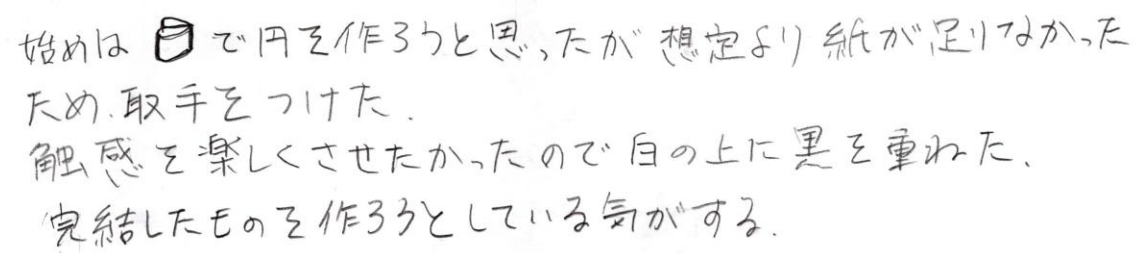 始めは で円を作ろうと思ったが想定より紙が足りなかった
ため、取手をつけた.
触感を楽しくさせたかったので白の上に黒を重ねた、
完結したものを作ろうとしている気がする.